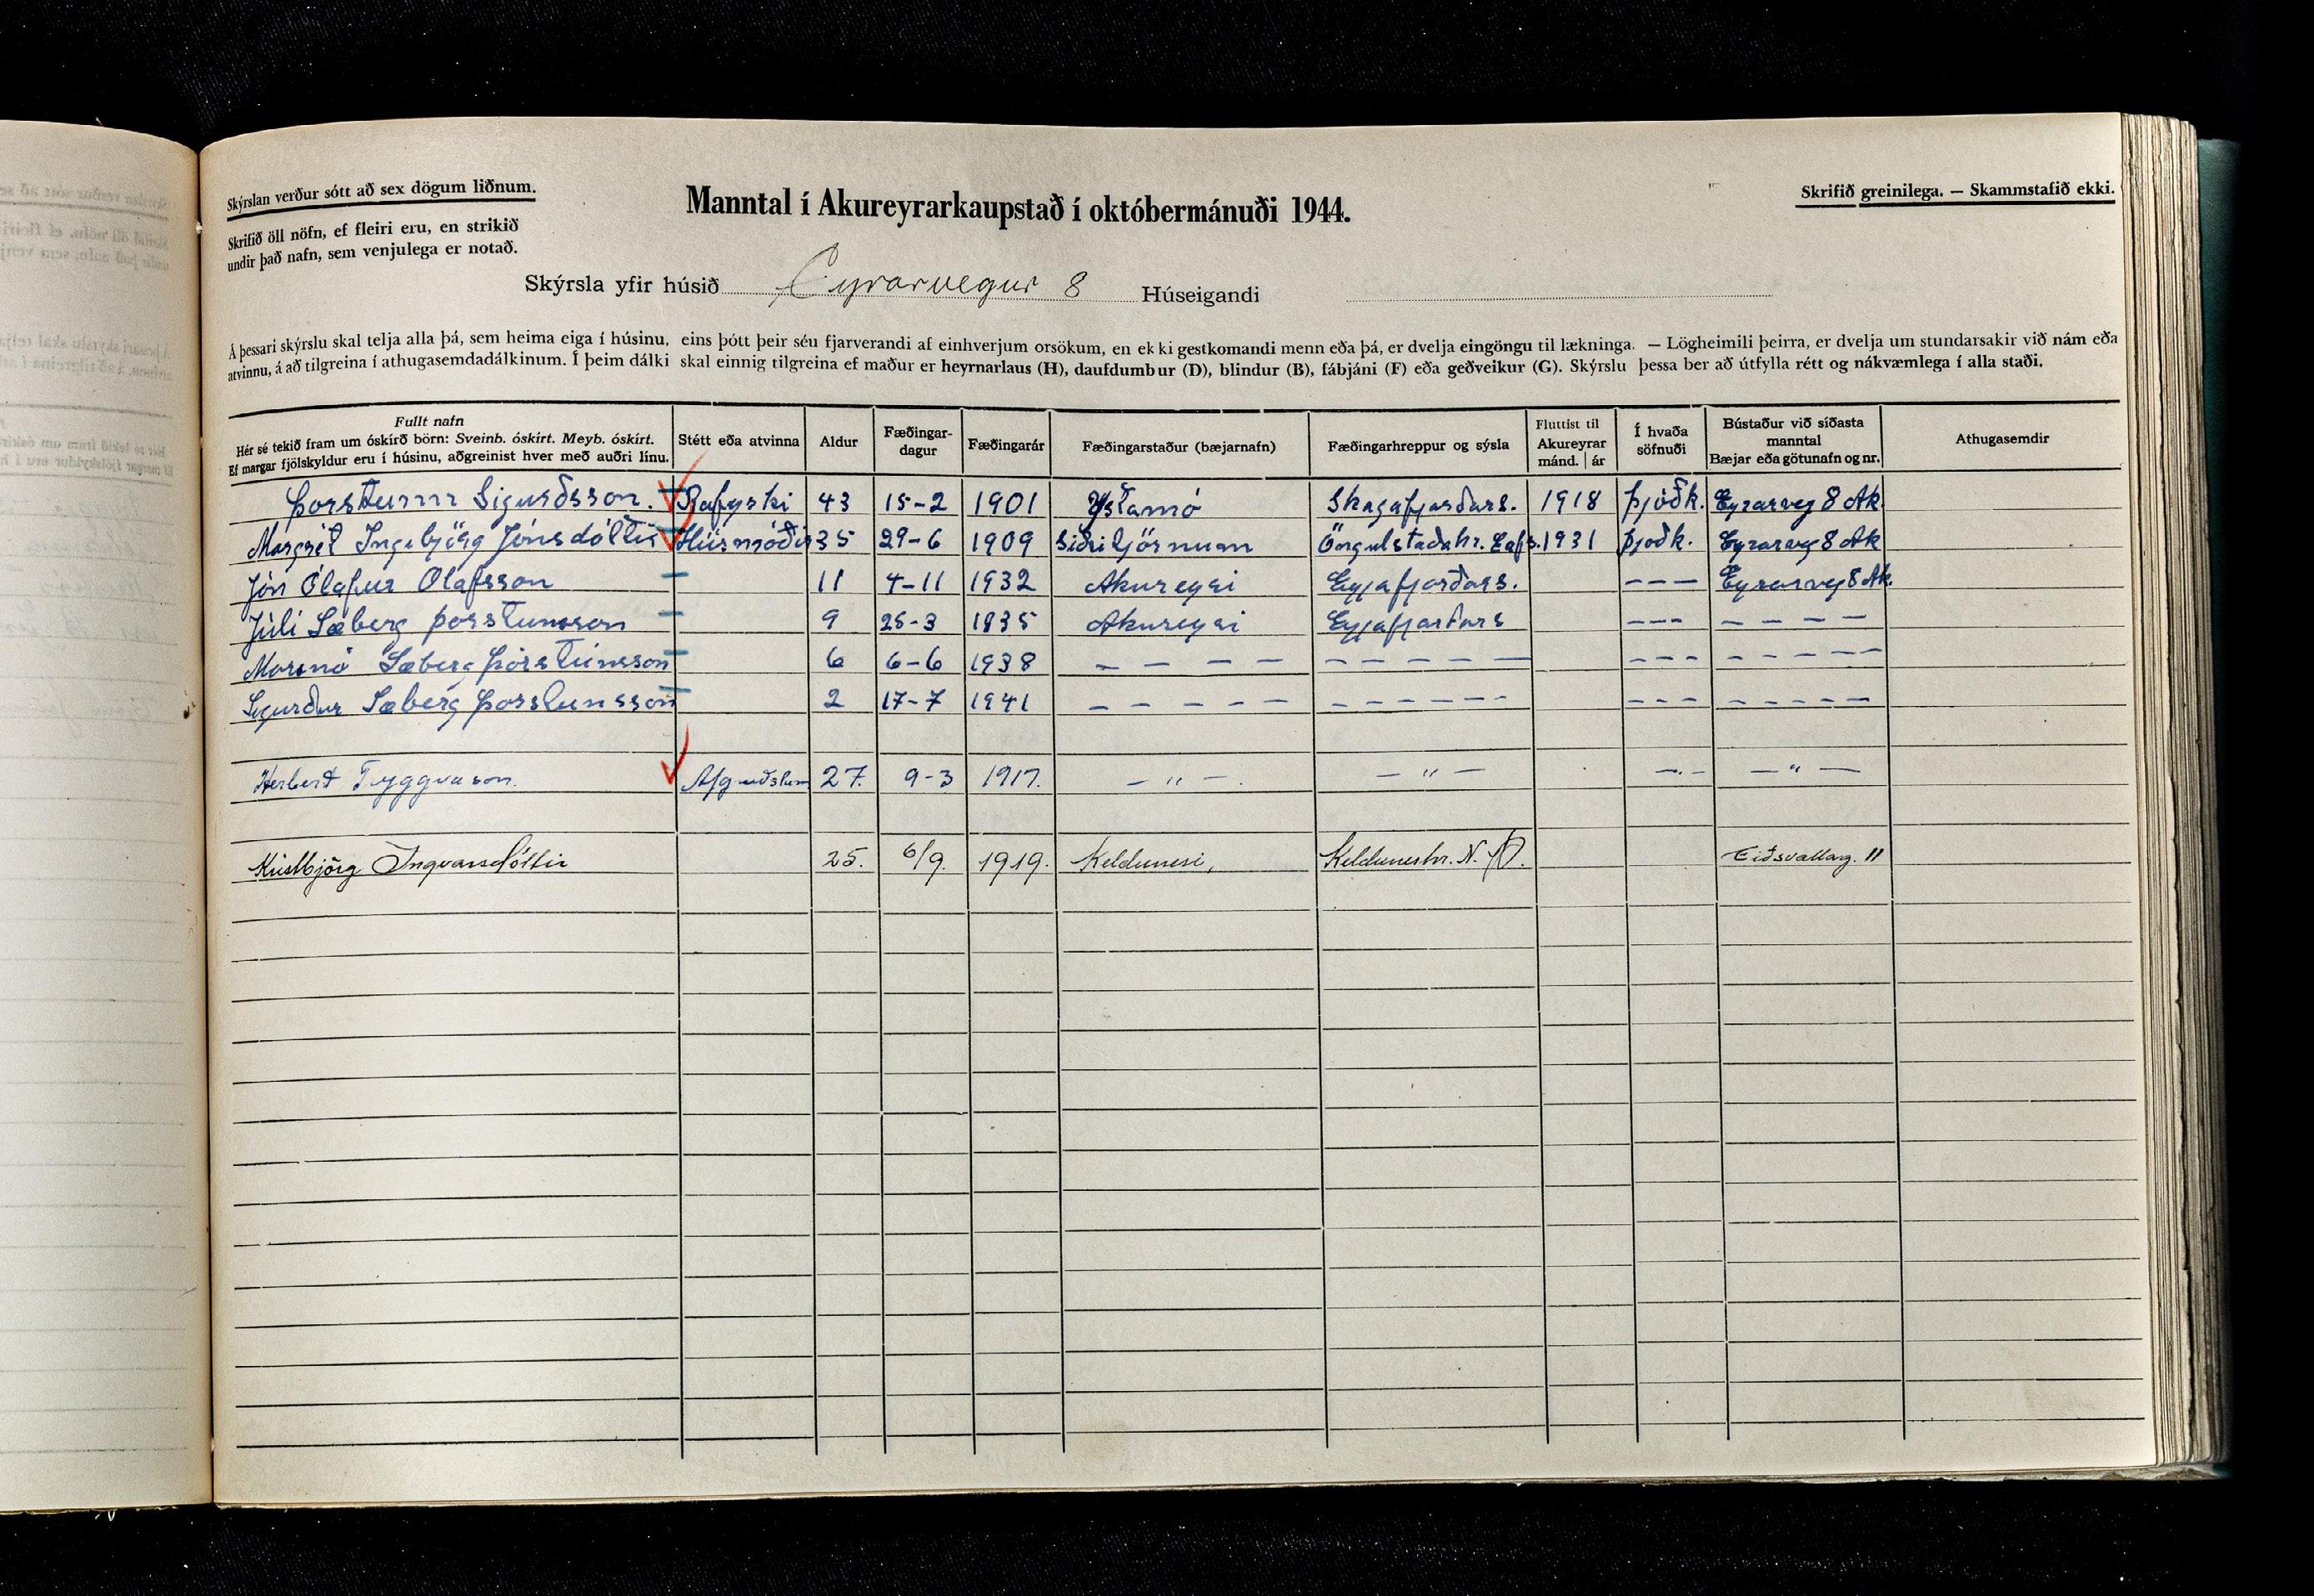 Skýrslan verður sótt að sex dögum liðnum.
Skrifið öll nöfn, ef fleiri eru, en strikið
undir það nafn, sem venjulega er notað.
Manntal í Akureyrarkaupstað í októbermánuði 1944.
Skrifið greinilega. — Skammstafið ekki.
Skýrsla yfir húsið Eyrarvegur 8 Húseigandi
Á þessari skýrslu skal telja alla þá, sem heima eiga í húsinu, eins þótt þeir séu fjarverandi af einhverjum orsökum, en ekki gestkomandi menn eða þá, er dvelja eingöngu til lækninga. — Lögheimili þeirra, er dvelja um stundarsakir við nám eða
atvinnu, á að tilgreina í athugasemdadálkinum. Í þeim dálki skal einnig tilgreina ef maður er heyrnarlaus (H), daufdumbur (D), blindur (B), fábjáni (F) eða geðveikur (G). Skýrslu þessa ber að útfylla rétt og nákvæmlega í alla staði.
Fullt nafn
Hér sé tekið fram um óskírð börn: Sveinb. óskírt. Meyb. óskírt.
Ef margar fjölskyldur eru í húsinu, aðgreinist hver með auðri línu.
Stétt eða atvinna
Aldur
Fæðingar-
dagur
Fæðingarár
Fæðingarstaður (bæjarnafn)
Fæðingarhreppur og sýsla
Fluttist til
Akureyrar
mánd. | ár
Í hvaða
söfnuði
Bústaður við síðasta
manntal
Bæjar eða götunafn og nr.
Athugasemdir
Þorsteinn Sigurðsson. Rafyrki 43 15-2 1901 Ystamó Skagafjarðars. 1918 Þjóðk. Eyrarveg 8 Ak
Margrét Ingibjörg Jónsdóttir Húsmóðir 35 29-6 1909 Öngulstaðahr. Eafs. 1931 Þjoðk. Eyrarveg 8 Ak
Jón Ólafur Olafsson 11 4-11 1932 Akureyri Eyjafjarðars. - - - Eyrarveg 8 Ak.
Júli Sæberg Þorsteinsson 9 25-3 1835 Akureyri Eyjafjarðars - - - - - - -
Sæberg Þorsteinsson 6 6-6 1938 - - - - - - - - - - - - - - - - -
Sigurður Sæberg Þorsteinsson 2 17-7 1941 - - - - - - - - - - - - - - - - - -
Herbert Tryggvason. 27. 9-3 1917. — " — . — " — — . — — " —
Kristbjörg Ingvarsdóttir 25. 6/9. 1919. Keldunesi, Kelduneshr. N. Þ. Eiðsvallag. 11